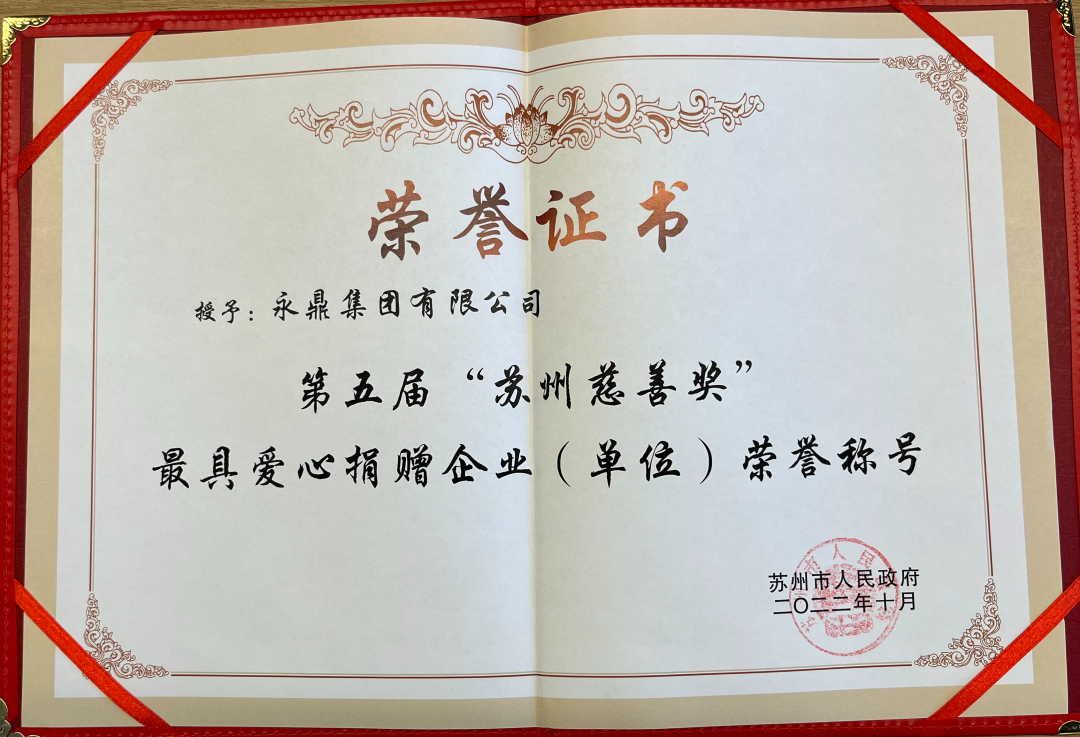 荣誉证书
授予：永鼎集团有限公司
第五届“苏州慈善奖”
最具爱心捐赠企业（单位）荣誉称号
苏州市人民政府
二〇二二年十月